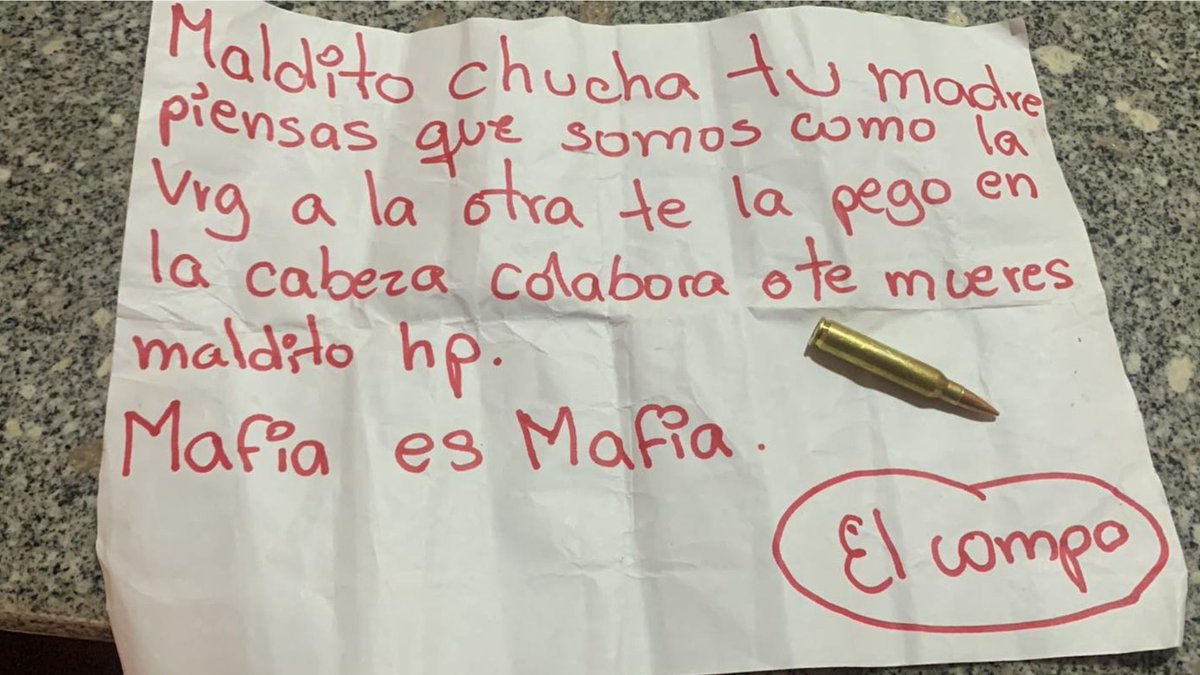 Maldito chucha tu madre
piensas que somos como la
vrg a la otra te la pego en
la cabeza colabora o te mueres
maldito hp.
Mafia es Mafia.
El compo